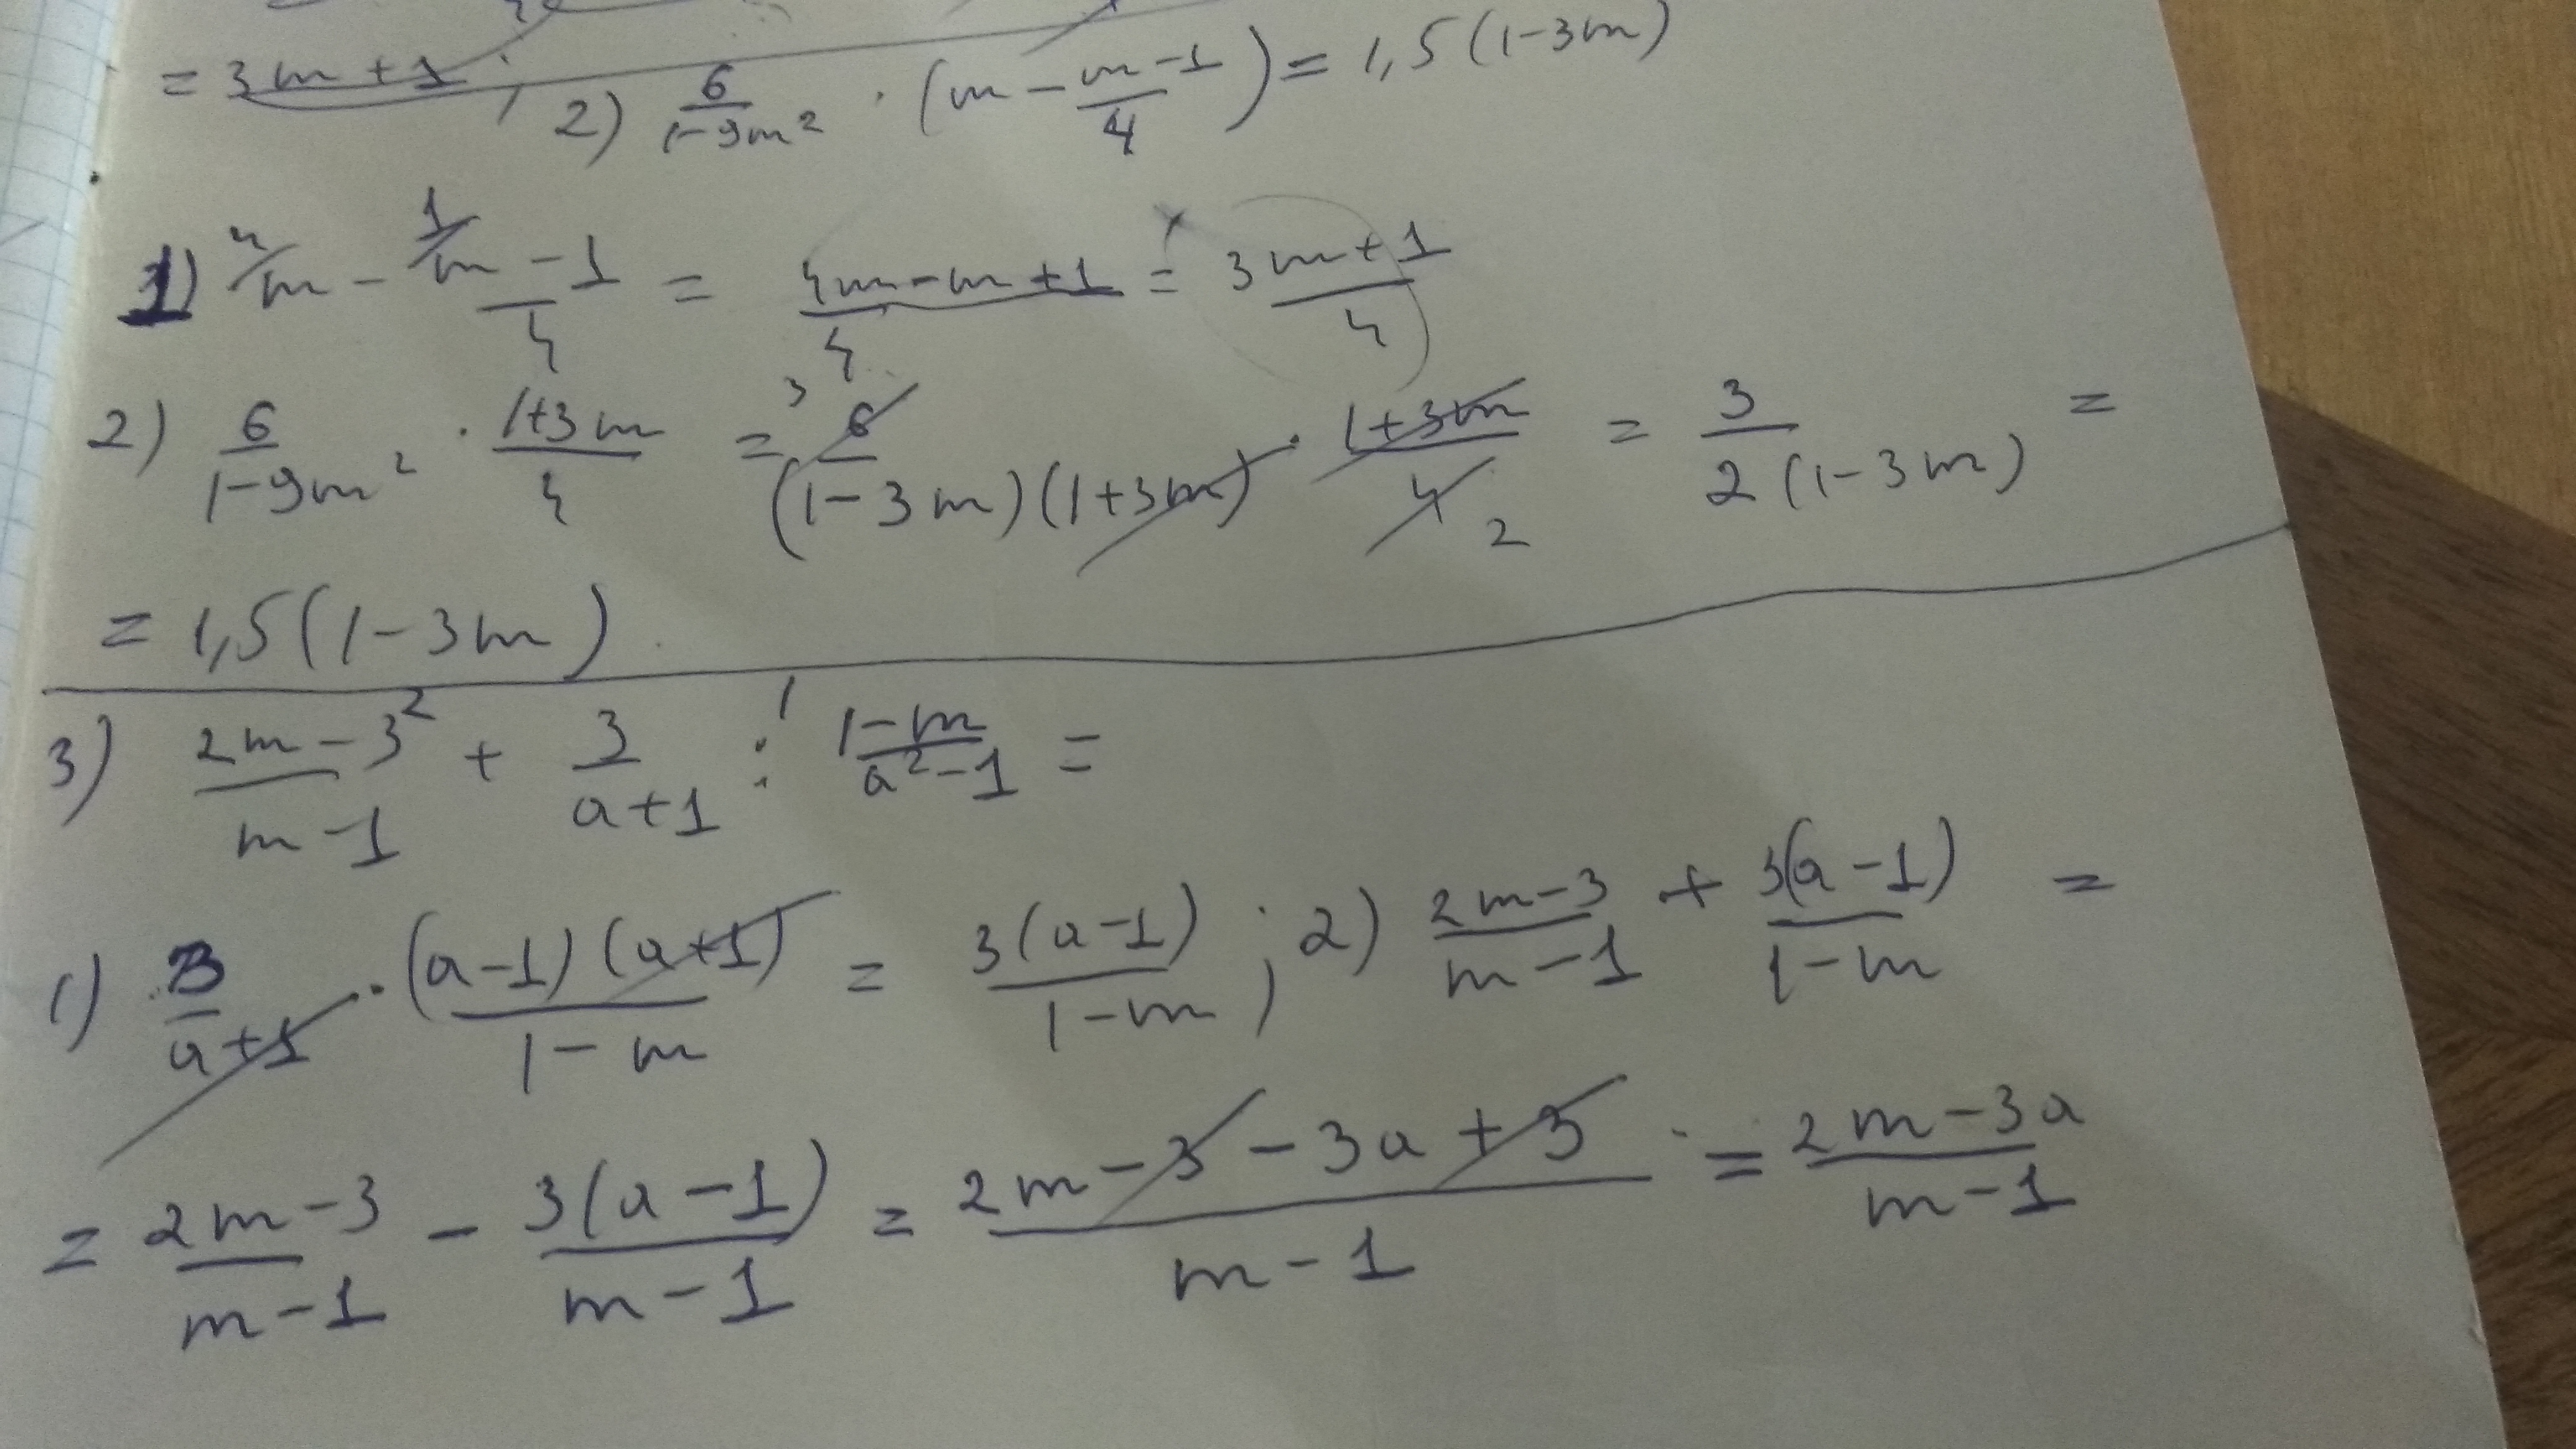 = 3m+1 ;
2) 6/(1-9m²) · (m - (m-1)/4) = 1,5(1-3m)
1) ⁴/m - ¹/(m-1)/4 = (4m-m+1)/4 = (3m+1)/4
2) 6/(1-9m²) · (1+3m)/4 = ³6/((1-3m)(1+3m)) · (1+3m)/4 2 = 3/(2(1-3m)) =
= 1,5(1-3m)
3) (2m-3)/(m-1) ² + 3/(a+1) :¹ (1-m)/(a²-1) =
1) 3/(a+1) · ((a-1)(a+1))/(1-m) = 3(a-1)/(1-m) ; 2) (2m-3)/(m-1) + 3(a-1)/(1-m) =
= (2m-3)/(m-1) - 3(a-1)/(m-1) = (2m-3-3a+3)/(m-1) = (2m-3a)/(m-1)